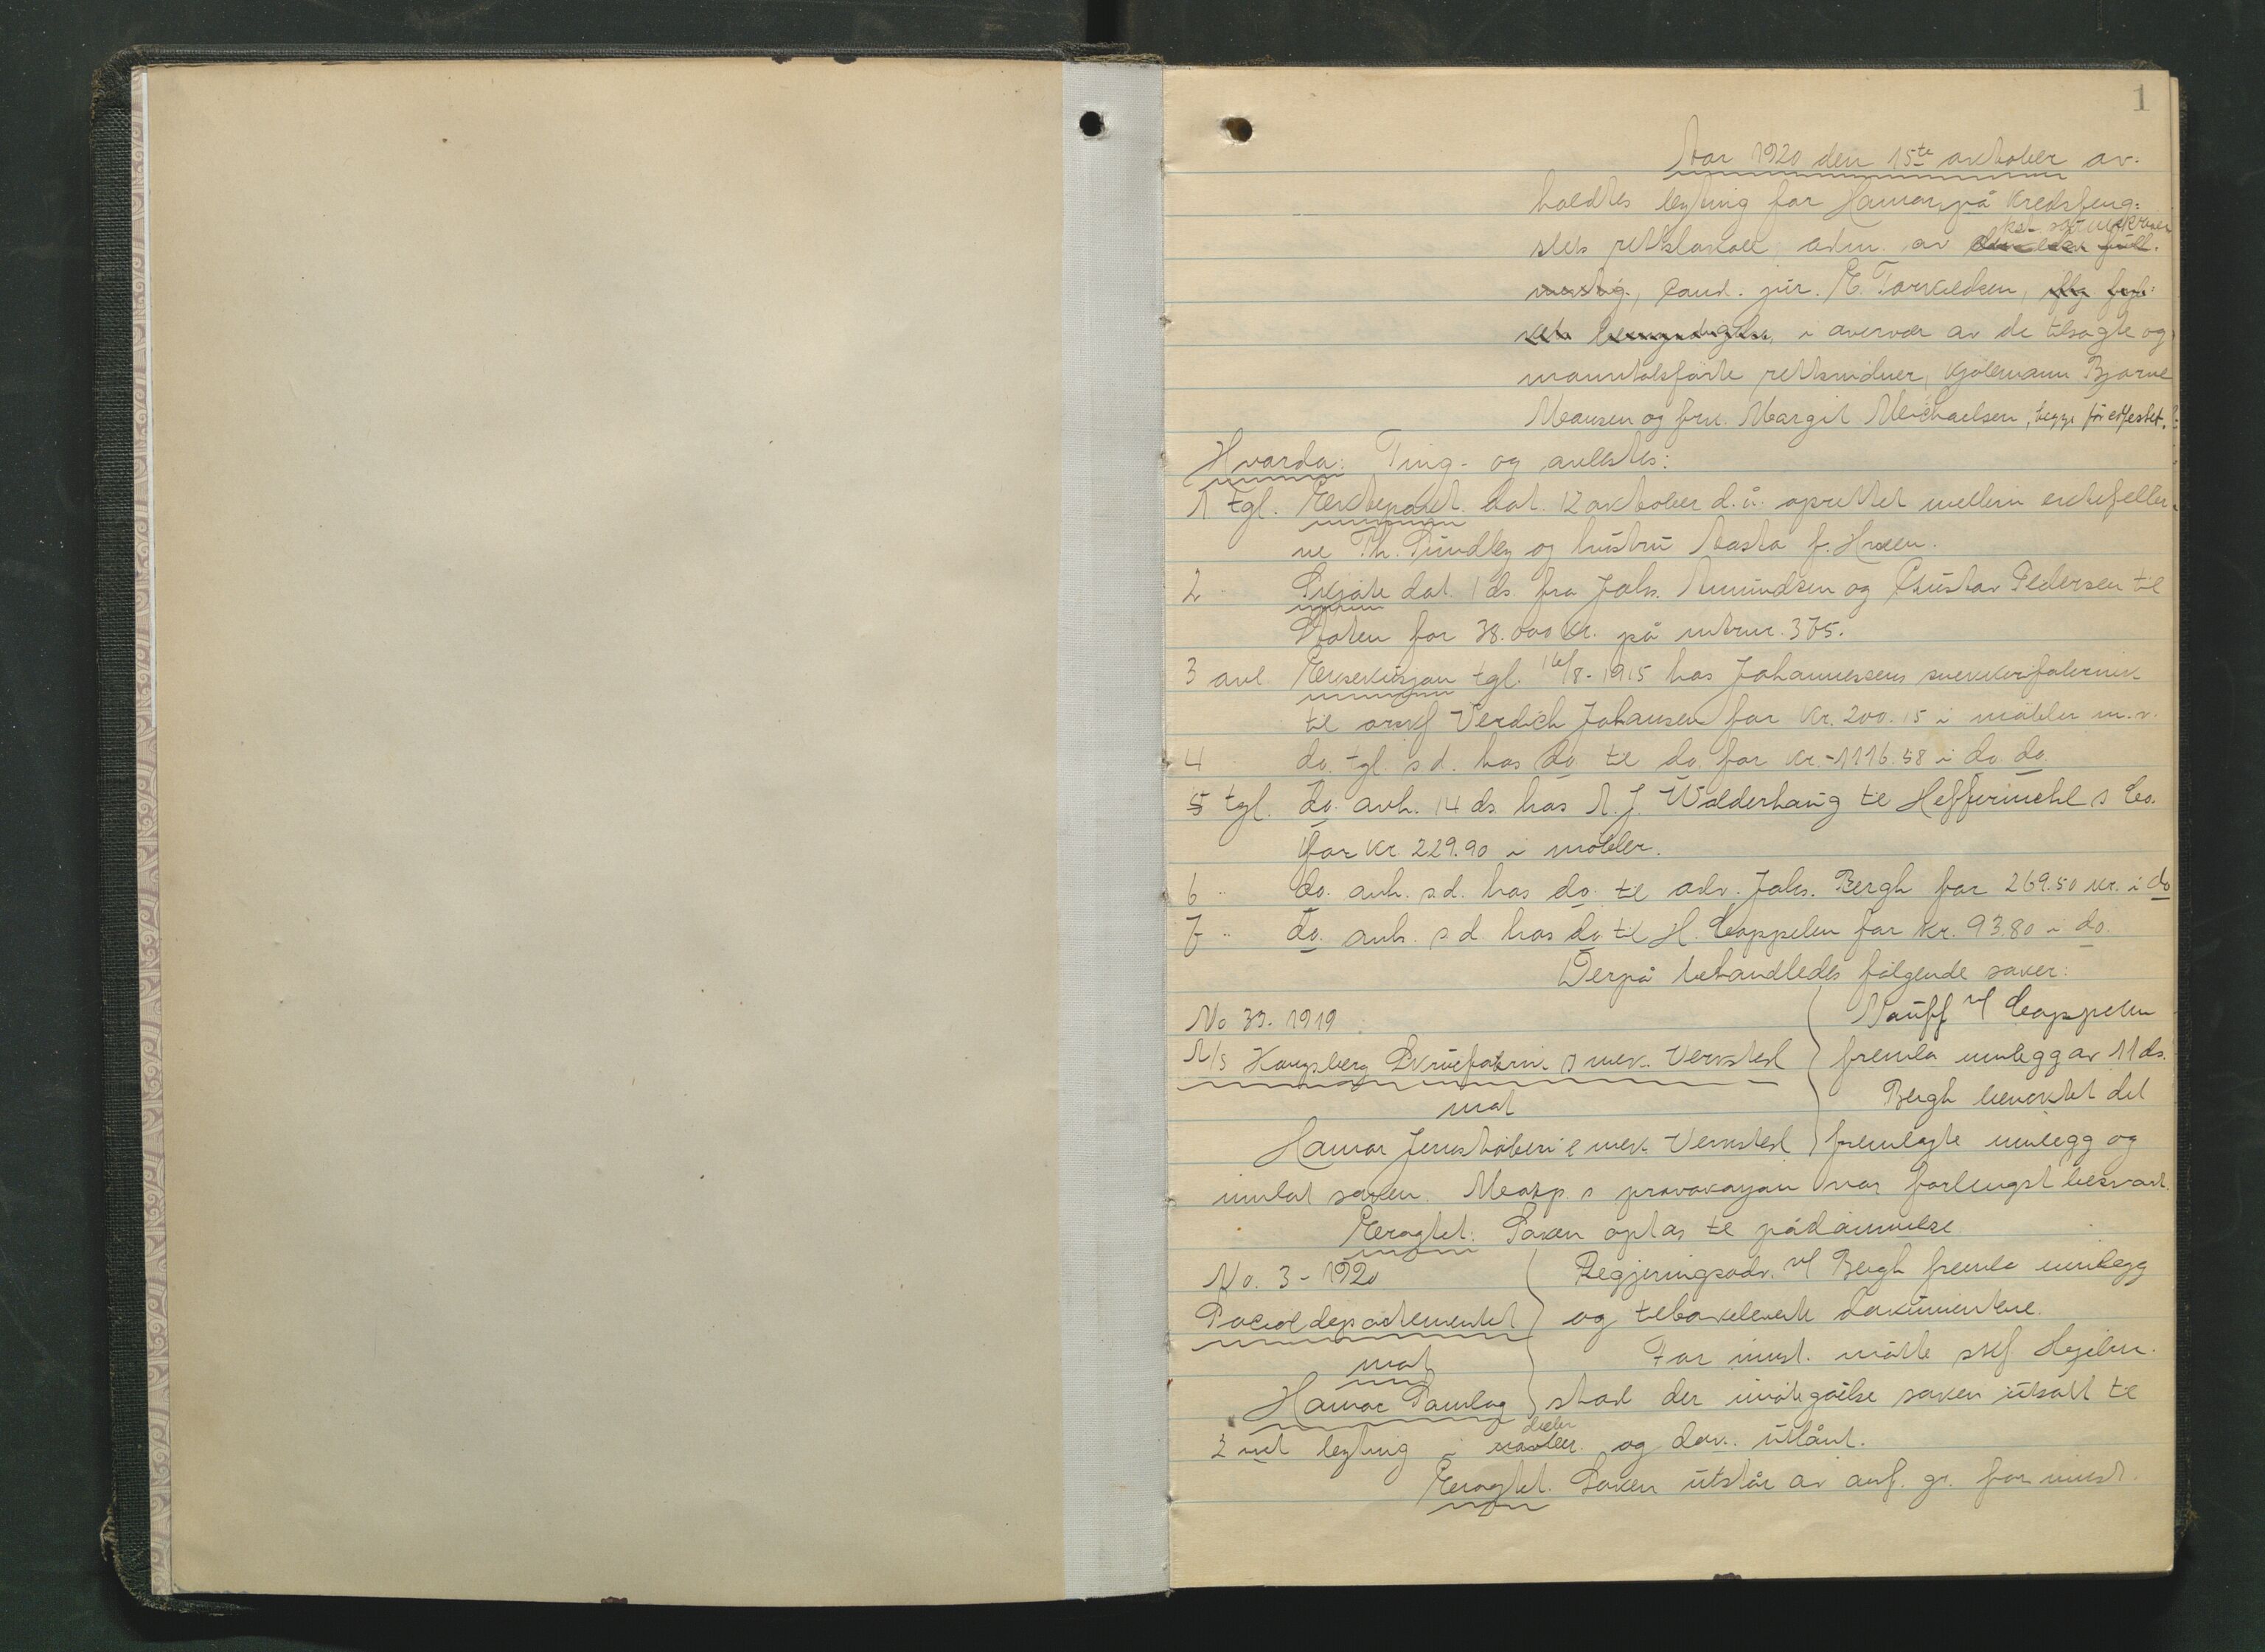 1
Aar 1920 den 15te oktober av-
holdtes byting for Hamar på Kredsfeng-
slets rettslokale adm. av kst. sorenskriver
cand. jur. E. Torkildsen,
i overvær av de tilsagte og
manntalsførte rettsvidner, kjøbmann Bjarne
Mausen og fru Margit Michaelsen, begge før edfestet.
Hvorda: Ting- og avlestes:
1 tgl. Ektepakt dat. 12 oktober d.å. oprettet mellem ektefeller-
ne Th. Sundby og hustru Aasta f.
2 " Skjøte dat. 1 ds. fra Johs. Amundsen og Gustav Pedersen til
Staten for 38.000 kr. på mtrnr. 375.
3 avl. Eksekusjon tgl. 16/8-1915 hos Johannessens snekkerfabrikk
til orskf Verdich Johansen for kr. 200.15 i møbler m.v.
4 do. tgl. s.d. hos do til do. for kr. 1116.58 i do. do.
5 tgl. do. avh. 14 ds. hos A. J. Walderhaug til Heffermehl & Co.
for kr 229.90 i møbler.
6 " do. avh. s.d. hos do. til adv. Johs. Bergh for 269.50 kr. i do
7 " do. avh. s.d. hos do. til H. Cappelen for kr. 93.80 i do.
Derpå behandledes følgende saker:
No 33. 1919
A/S Kongsberg Skruefabrik & mek. Verksted
mot
Hamar Jernstøberi & mek. Verksted
Nauff v/ Cappelen
fremla innlegg av 11 ds.
Bergh bevoktet det
fremlagte innlegg og
innlot saken. Motp.s provokasjon var forlengst besvart.
Eragtet: Saken optas til pådømmelse.
No. 3 - 1920
Socialdepartementet
mot
Hamar Samlag
Regjeringsadv. v/ Bergh fremla innlegg
og tilbakeleverte dokumentene.
For innst. møtte skf Hjelm-
stad der imøtegåelse saken utsatt til
2net byting i deebr. og dok. utlånt.
Eragtet. Saken utstår av anf. gr. for innst.